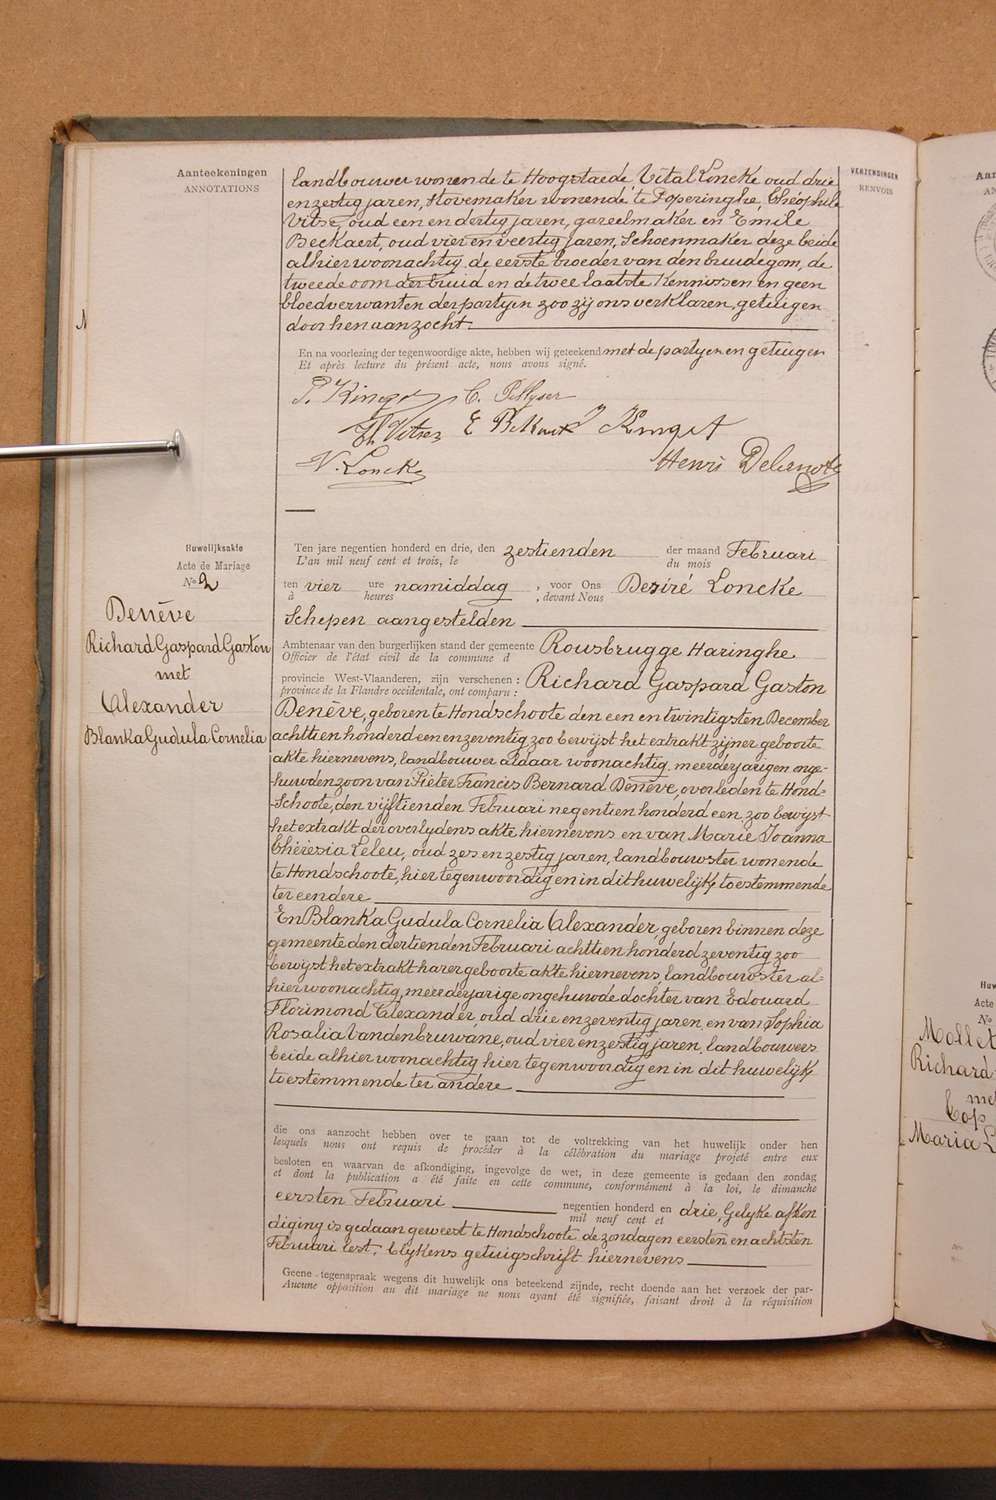 Aanteekeningen
ANNOTATIONS
VERZENDINGEN
RENVOIS
landbouwer wonende te Hoogstaede Vital Loncke oud drie
en zestig jaren, stovemaker wonende te Poperinghe, Théophile
Vitse, oud een en dertig jaren, gareelmaker en Emile
Beckaert, oud vier en veertig jaren, Schoenmaker deze beide
alhier woonachtig, de eerste broeder van den bruidegom, de
tweede oom der bruid en de twee laatste Kennissen en geen
bloedverwanten der partyen zoo zij ons verklaren, getuigen
door hen aanzocht.
En na voorlezing der tegenwoordige akte, hebben wij geteekend met de partyen en getuigen
Et après lecture du présent acte, nous avons signé.
V. Loncke
Henri
Huwelijksakte
Acte de Mariage
No 2
Denêve
Richard Gaspard Gaston
met
Alexander
Blanka Gudula Cornelia
Ten jare negentien honderd en drie, den zestienden der maand Februari
L'an mil neuf cent et trois, le du mois
ten vier ure namiddag, voor Ons Desiré Loncke
à heures, devant Nous
Schepen aangestelden
Ambtenaar van den burgerlijken stand der gemeente Rousbrugge Haringhe
Officier de l'état civil de la commune d
provincie West-Vlaanderen, zijn verschenen: Richard Gaspard Gaston
province de la Flandre occidentale, ont comparu:
Denêve, geboren te Hondschoote den een en twintigsten December
achttien honderd een en zeventig zoo bewijst het extrakt zijner geboorte
akte hiernevens, landbouwer aldaar woonachtig, meerderjarigen onge-
huwden zoon van Pieter Francis Bernard Denêve, overleden te Hond-
-Schoote, den vijftienden Februari negentien honderd een zoo bewijst
het extrakt der overlydens akte hiernevens en van Marie Joanna
Théresia Leleu, oud zes en zestig jaren, landbouwster wonende
te Hondschoote, hier tegenwoordig en in dit huwelijk toestemmende
ter eendere
En Blanka Gudula Cornelia Alexander, geboren binnen deze
gemeente den dertienden Februari achttien honderd zeventig zoo
bewijst het extrakt harer geboorte akte hiernevens, landbouwster al-
hier woonachtig, meerderjarige ongehuwde dochter van Edouard
Florimond Alexander oud drie en zeventig jaren, en van Sophia
Rosalia Vandenbruwane, oud vier en zestig jaren, landbouwers
beide alhier woonachtig hier tegenwoordig en in dit huwelijk
toestemmende ter andere
die ons aanzocht hebben over te gaan tot de voltrekking van het huwelijk onder hen
lesquels nous ont requis de procéder à la célébration du mariage projeté entre eux
besloten en waarvan de afkondiging, ingevolge de wet, in deze gemeente is gedaan den zondag
et dont la publication a été faite en cette commune, conformément à la loi, le dimanche
eersten Februari negentien honderd en drie, Gelyke afkon
mil neuf cent et
diging is gedaan geweest te Hondschoote de zondagen eersten en achtsten
Februari lest, blykens getuigschrift hiernevens
Geene tegenspraak wegens dit huwelijk ons beteekend zijnde, recht doende aan het verzoek der par-
Aucune opposition au dit mariage ne nous ayant été signifiée, faisant droit à la réquisition
Acte
No
Mollet
Richard
Cop
Maria L